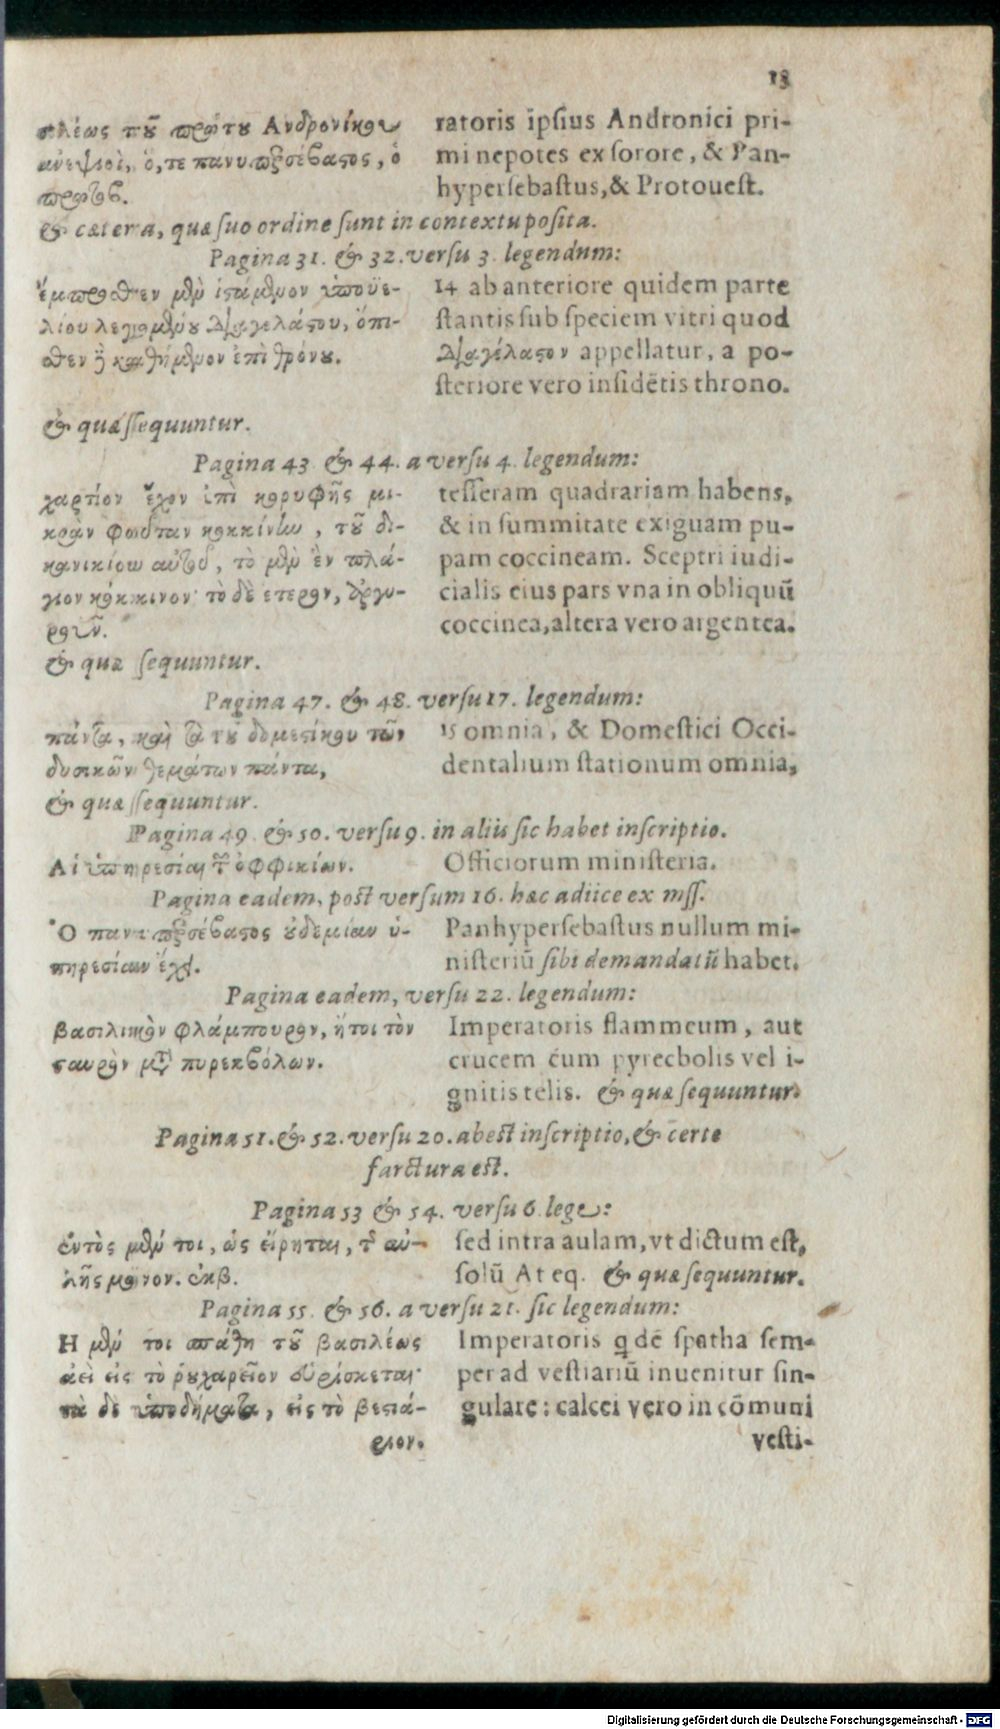 13
σιλέως τοῦ πρώτου Ἀνδρονίκου
ἀνεψιοὶ, ὅ, τε πανυπερσέβαστος, ὁ
πρωτοβ.
ratoris ipsius Andronici pri-
mi nepotes ex sorore, & Pan-
hypersebastus, & Protouest.
& cætera, quæ suo ordine sunt in contextu posita.
Pagina 31. & 32. versu 3. legendum:
ἔμπροθεν μὲν ἱστάμενον ὑποϋε-
λίου λεγομένου διαγελάστου, ὄπι-
θεν δὲ καθήμενον ἐπὶ θρόνου.
14 ab anteriore quidem parte
stantis sub speciem vitri quod
διαγέλαστον appellatur, a po-
steriore vero insidētis throno.
& quæ sequuntur.
Pagina 43 & 44. a versu 4. legendum:
χαρτίον ἔχον ἐπὶ κορυφῆς μι-
κρὰν φούνταν κοκκίνην, τοῦ δι-
κανικίου αὐτοῦ, τὸ μὲν ἓν πλά-
γιον κόκκινον· τὸ δὲ ετερον, ἀργυ-
ροῦν.
tesseram quadrariam habens,
& in summitate exiguam pu-
pam coccineam. Sceptri iudi-
cialis eius pars vna in obliquū
coccinea, altera vero argentea.
& quæ sequuntur.
Pagina 47. & 48. versu 17. legendum:
πάντα, καὶ τὰ τοῦ δομεστίκου τῶν
δυσικῶν θεμάτων πάντα,
15 omnia, & Domestici Occi-
dentalium stationum omnia,
& quæ sequuntur.
Pagina 49. & 50. versu 9. in aliis sic habet inscriptio.
Αἱ ὑπηρεσίαι τῶν ὀφφικίων.
Officiorum ministeria.
Pagina eadem, post versum 16. hæc adiice ex mss.
Ὁ πανυπερσέβαστος οὐδεμίαν ὑ-
πηρεσίαν ἔχει.
Panhypersebastus nullum mi-
nisteriū sibi demandatū habet.
Pagina eadem, versu 22. legendum:
βασιλικὸν φλάμπουρον, ἤτοι τὸν
σταυρὸν μετὰ πυρεκβόλων.
Imperatoris flammeum, aut
crucem cum pyrecbolis vel i-
gnitis telis. & quæ sequuntur.
Pagina 51. & 52. versu 20. abest inscriptio, & certe
farctura est.
Pagina 53 & 54. versu 6. lege:
ἐντὸς μέν τοι, ὡς εἴρηται, τῆς αὐ-
λῆς μόνον. ἐκβ.
sed intra aulam, vt dictum est,
solū At eq. & quæ sequuntur.
Pagina 55. & 56. a versu 21. sic legendum:
Η μέν τοι σπάθη τοῦ βασιλέως
ἀεὶ εἰς τὸ ῥουχαρεῖον εὑρίσκεται·
τὰ δὲ ὑποδήματα, εἰς τὸ βεστιά-
ριον.
Imperatoris qdē spatha sem-
per ad vestiariū inuenitur sin-
gulare: calcei vero in cōmuni
vesti-
Digitalisierung gefördert durch die Deutsche Forschungsgemeinschaft - DFG